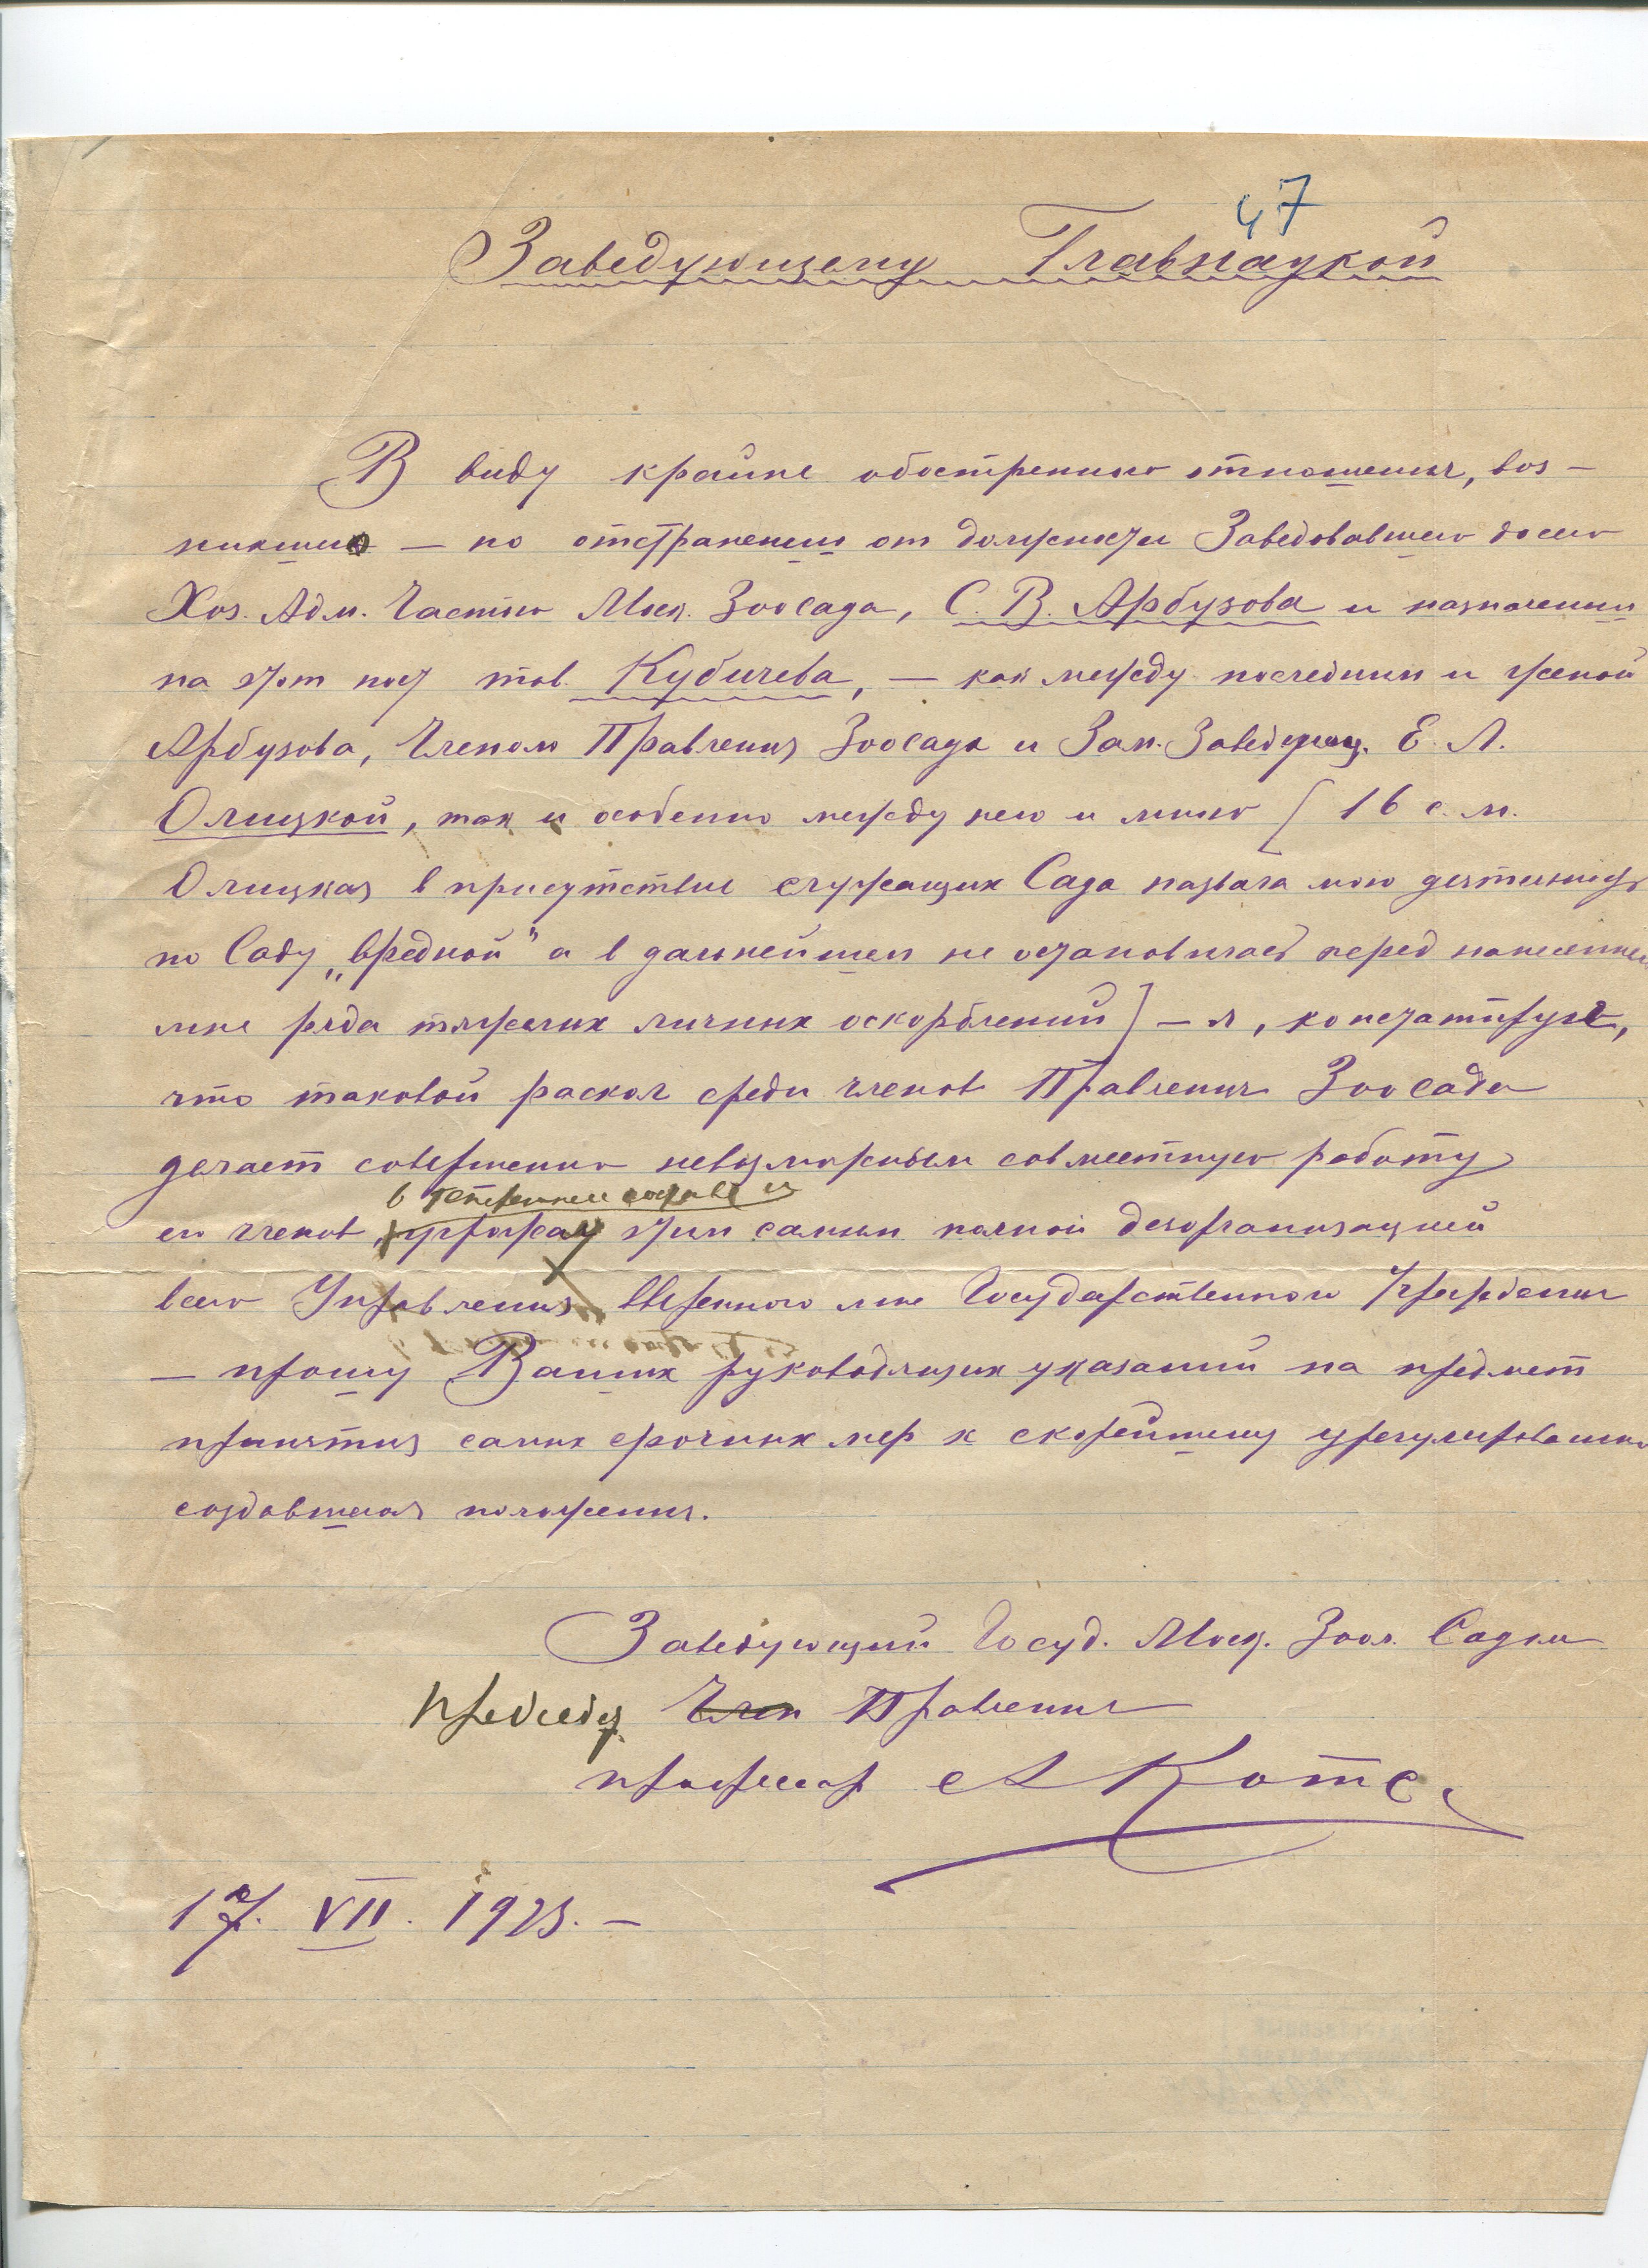 47
Заведующему Главнаукой
В виду крайне обостренного отношения, воз-
никшего — по отстранении от должности Заведовавшего досего
Хоз. Адм. Частью Моск. Зоосада, С. В. Арбузова и назначении
на этот пост тов. Кубичева, — как между последним и женой
Арбузова, Членом Правления Зоосада и Зам. Заведующ. Е. Л.
Олицкой, так и особенно между нею и мною [16 с. м.
Олицкая в присутствие служащих Сада назвала мою деятельность
по Саду „вредной" а в дальнейшем не остановилась перед нанесением
мне ряда тяжелых личных оскорблений] — я, констатируя,
что таковой раскол среди членов Правления Зоосада
делает совершенно невозможным совместную работу
в теперешнем составе и
его членов, угрожая этим самым полной дезорганизацией
всего Управления вверенного мне Государственного Учреждения
— прошу Ваших руководящих указаний на предмет
принятия самых срочных мер к скорейшему урегулированию
создавшегося положения.
Заведующий Госуд. Моск. Зоол. Садом
Председ. Член Правления
профессор А Котс.
17. VII. 1923. —